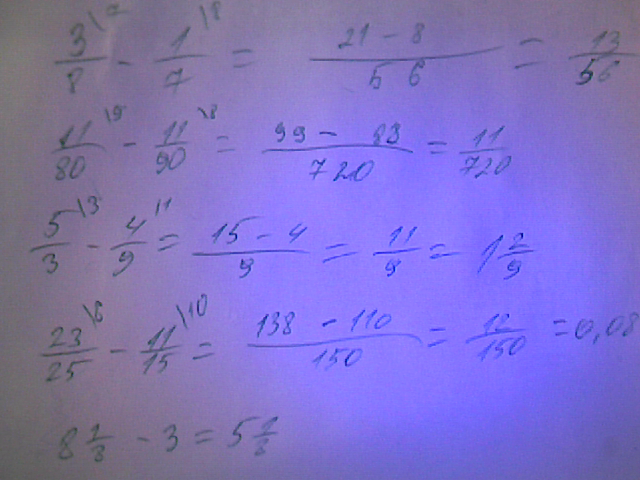 3/8 \7 - 1/7 \8 = 21 - 8 / 56 = 13/56
11/80 \9 - 11/90 \8 = 99 - 83 / 720 = 11/720
5/3 \3 - 4/9 \1 = 15 - 4 / 9 = 11/9 = 1 2/9
23/25 \6 - 11/15 \10 = 138 - 110 / 150 = 12/150 = 0,08
8 1/3 - 3 = 5 1/3